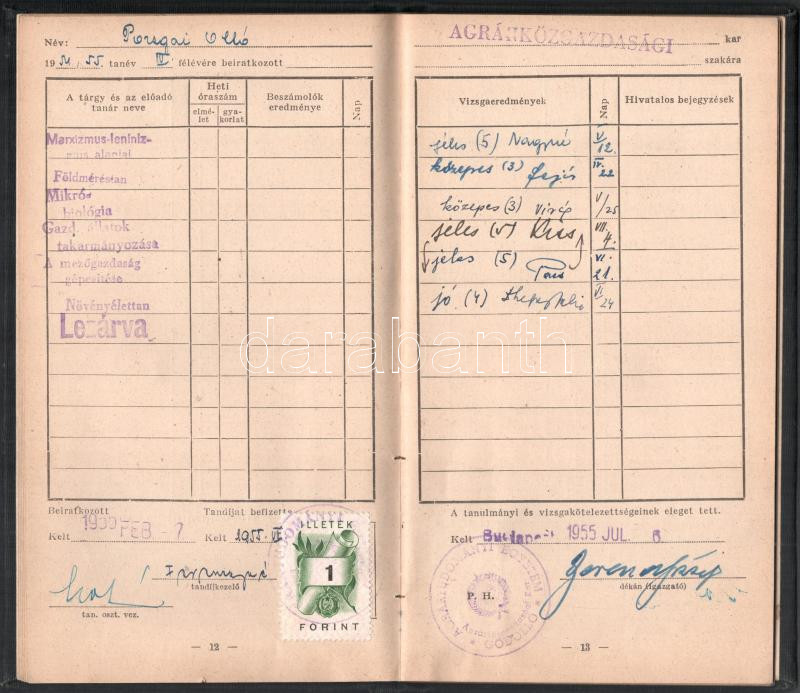 Név: Pozsgai Ottó
1954/55 tanév IV. félévére beiratkozott
A tárgy és az előadó tanár neve
Heti óraszám
elmélet
gyakorlat
Beszámolók eredménye
Nap
Marxizmus-leniniz-
mus alapjai
Földméréstan
Mikro-
biológia
Gazd. állatok
takarmányozása
A mezőgazdaság
gépesítése
Növényélettan
Lezárva
Beiratkozott
Kelt 1955 FEB - 7
Tandíjat befizette
Kelt 1955 VI
tan. oszt. vez.
tandíjkezelő
ILLETÉK
1
FORINT
— 12 —
AGRÁRKÖZGAZDASÁGI kar
szakára
Vizsgaeredmények
Nap
Hivatalos bejegyzések
jeles (5) Nagyné V/12.
közepes (3) IV. 22
közepes (3) V/25
jeles (5) Kiss VII. 4.
jeles (5) VI. 21.
jó (4) VI. 24
A tanulmányi és vizsgakötelezettségeinek eleget tett.
Kelt Budapest 1955 JUL. 6
P. H.
dékán (igazgató)
AGRÁRTUDOMÁNYI EGYETEM
GÖDÖLLŐ
— 13 —
darabanth